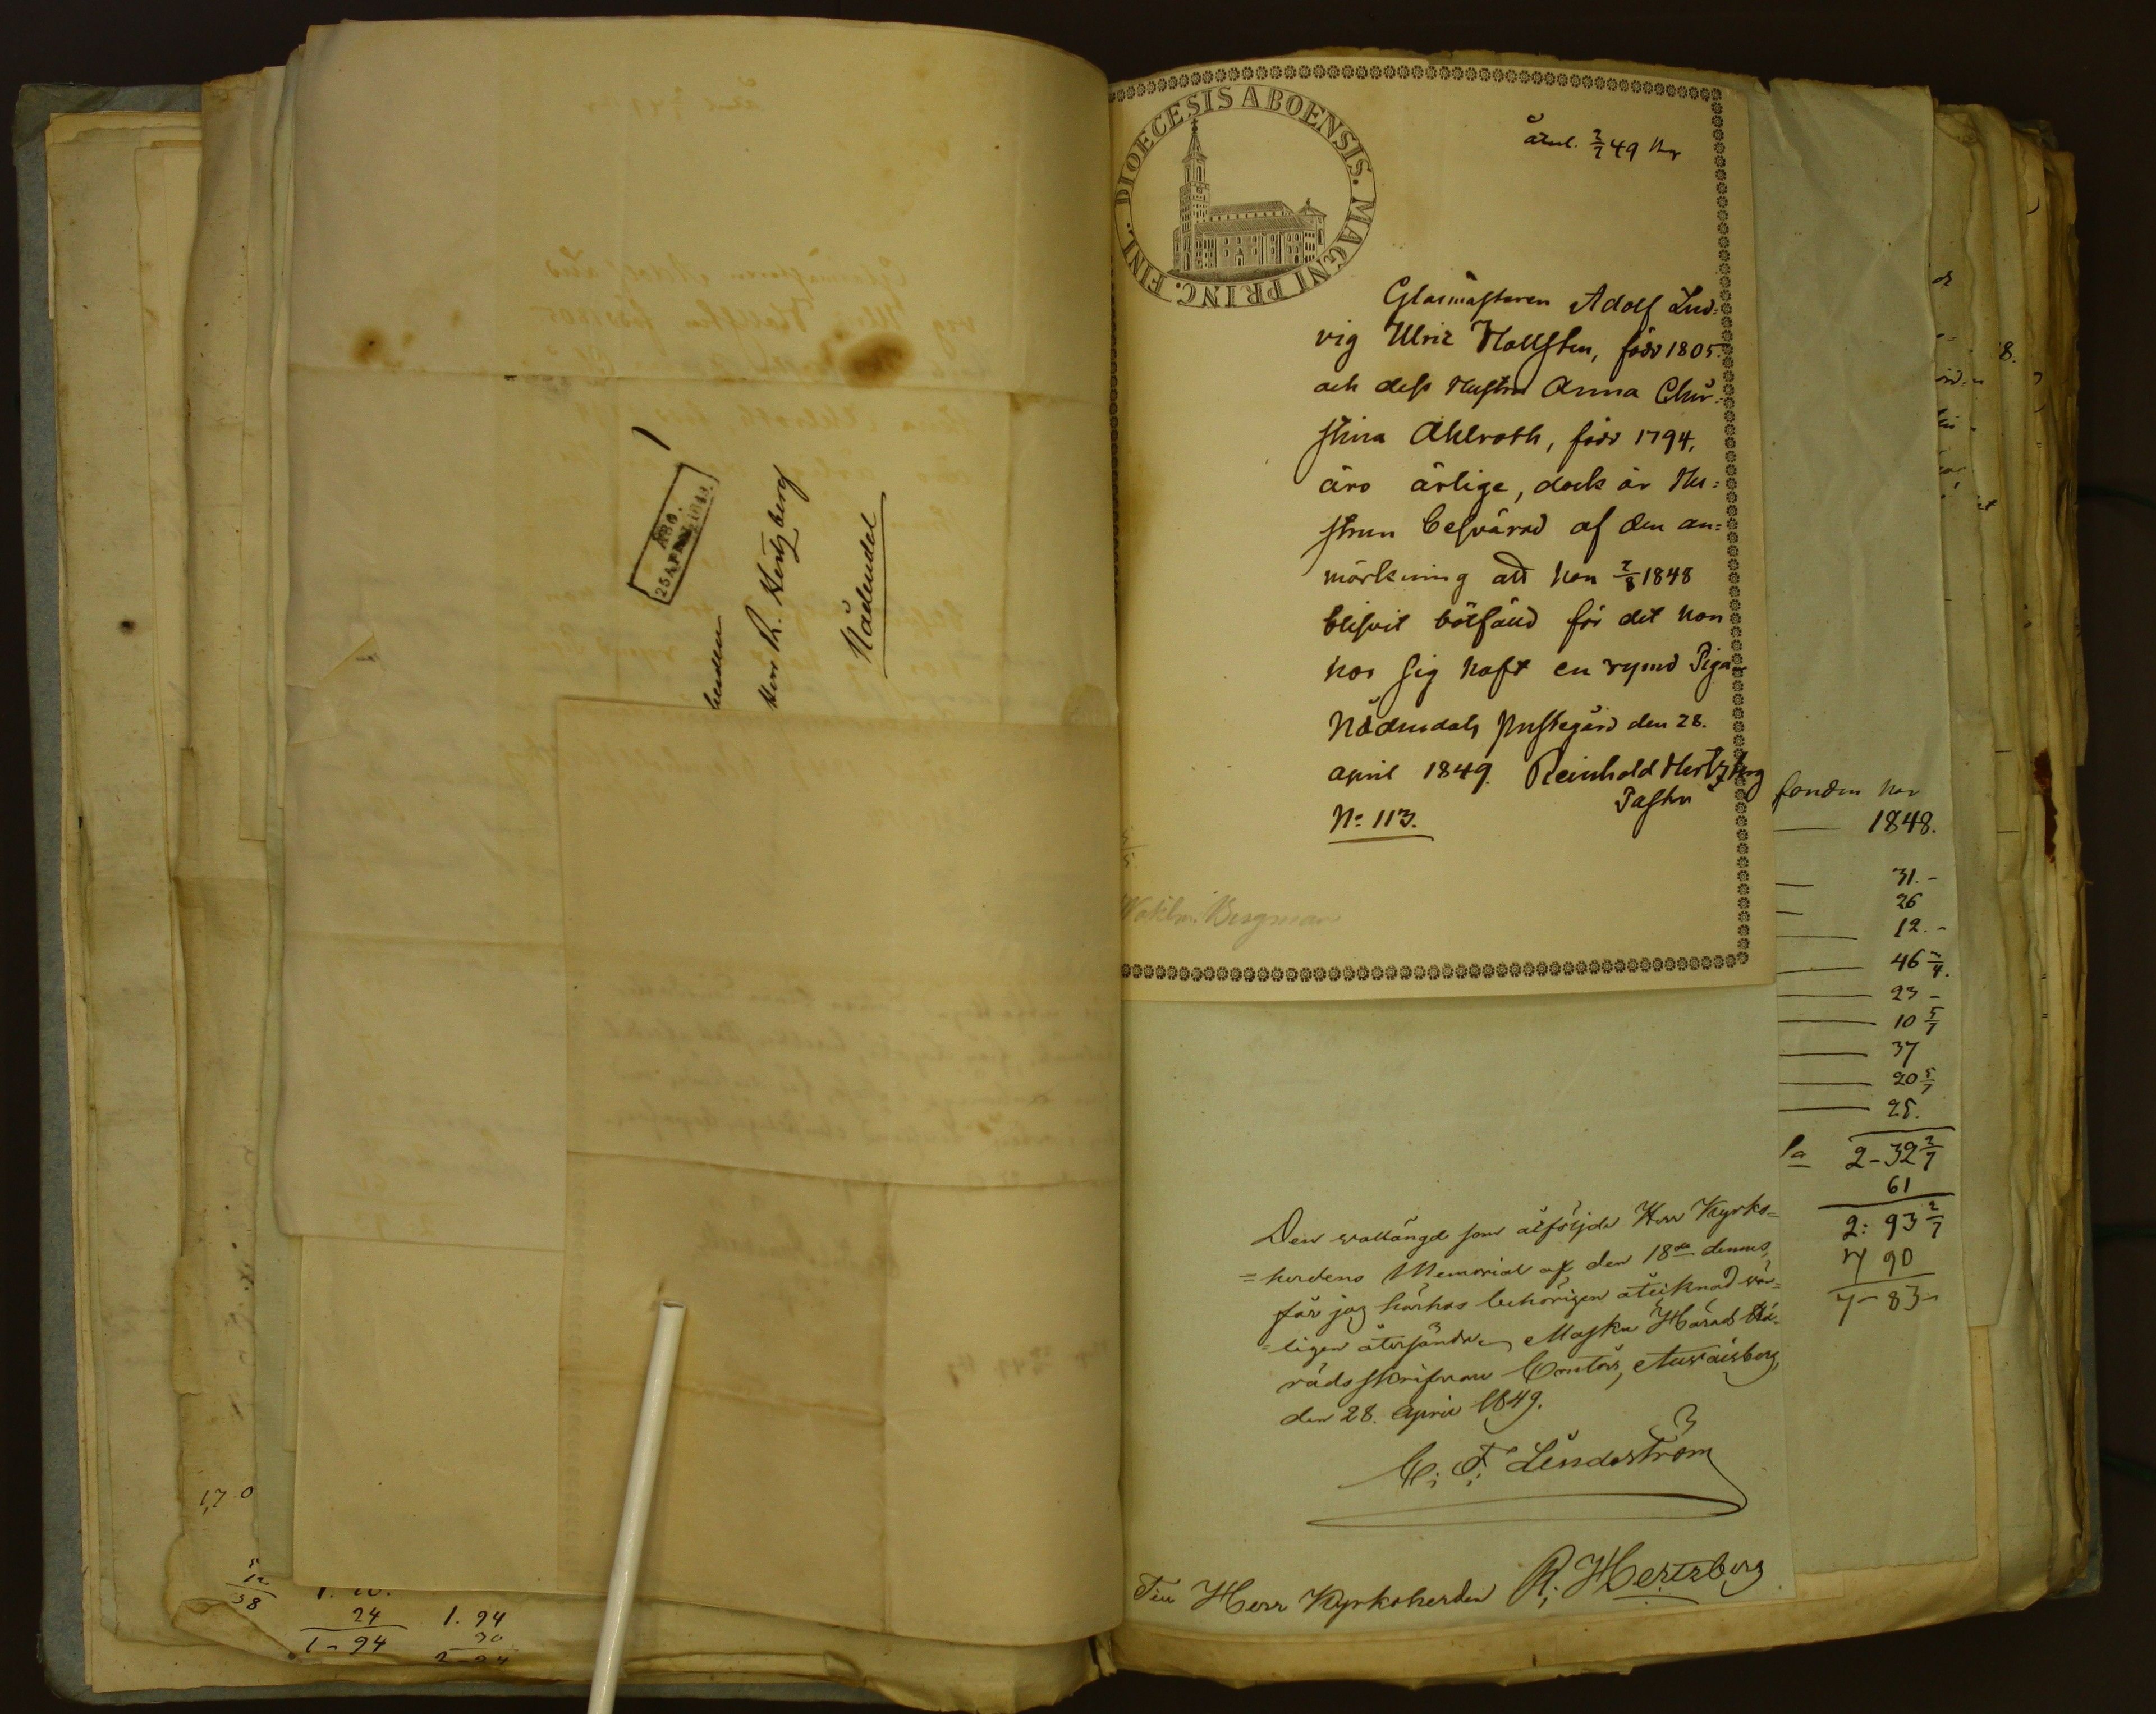 ÅBO.
25 APR 1849.
herden
Herr R. Hertzberg
Nådendal
1,7 0
12
38
24
1-94
1. 94
90
DIOECESIS ABOENSIS. MAGNI PRINC. FINL.
åtnl. 2/7 49
Glasmästaren Adolf Lud-
vig Ulric Hallsten, född 1805.
och dess Hustru Anna Chri-
stina Ahlroth, född 1794,
äro ärlige, dock är Hu=
strun besvärad af den an=
märkning att hon 2/8 1848
blifvit bötfälld för det hon
hos sig haft en rymd Piga
Nådendals Prestegård den 28.
april 1849. Reinhold Hertzberg
Pastor
No 113.
Bergman
Den vallängd som åtföljde Herr Kyrko=
=herdens Memorial af den 18de dennes,
får jag härhos behörigen återsända
Masku Härads Hä-
radsskrifvare Contor,
den 28. April 1849.
C: F: Lindström
Till Herr Kyrkoherden R: Hertzberg
1848.
31.-
26
12.-
46 3/4.
23 -
10 5/7
37
20 5/7
25.
2-32 3/7
61
2: 93 2/7
4 90
7-83-
8.